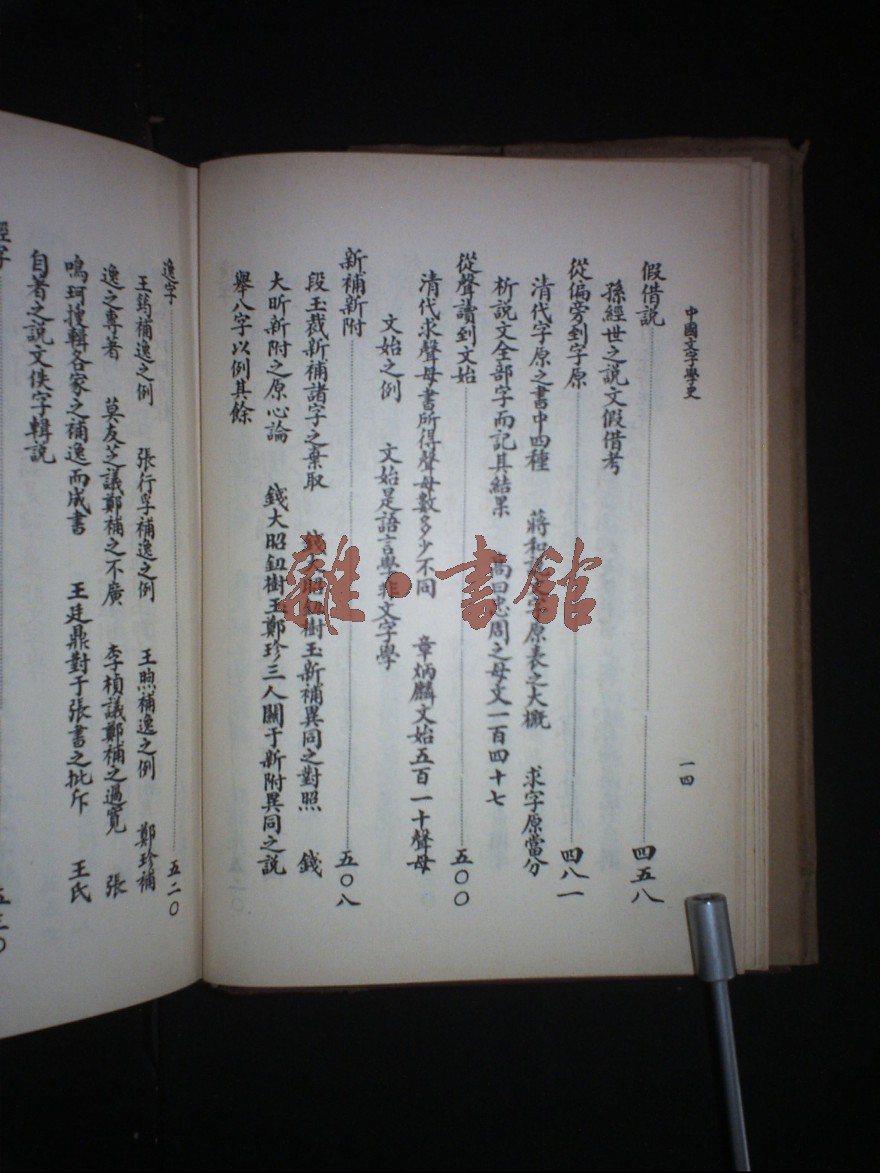 中國文字學史
一四
假借說
四五八
孫經世之說文假借考
從偏旁到字原
四八一
清代字原之書中四種 蔣和 字原表之大概 求字原當分
析說文全部字而記其結果 高田忠周之母文一百四十七
從聲讀到文始
五〇〇
清代求聲母書所得聲母數多少不同 章炳麟文始五百一十聲母
文始之例 文始是語言學非文字學
新補新附
五〇八
段玉裁新補諸字之棄取 錢大昭鈕樹玉新補異同之對照 錢
大昕新附之原心論 錢大昭鈕樹玉鄭珍三人關于新附異同之說
舉八字以例其餘
逸字
五二〇
王筠補逸之例 張行孚補逸之例 王煦補逸之例 鄭珍補
逸之專著 莫友芝議鄭補之不廣 李楨議鄭補之過寬 張
鳴珂搜輯各家之補逸而成書 王廷鼎對于張書之批斥 王氏
自著之說文佚字輯說
經字
五三〇
雜·書館